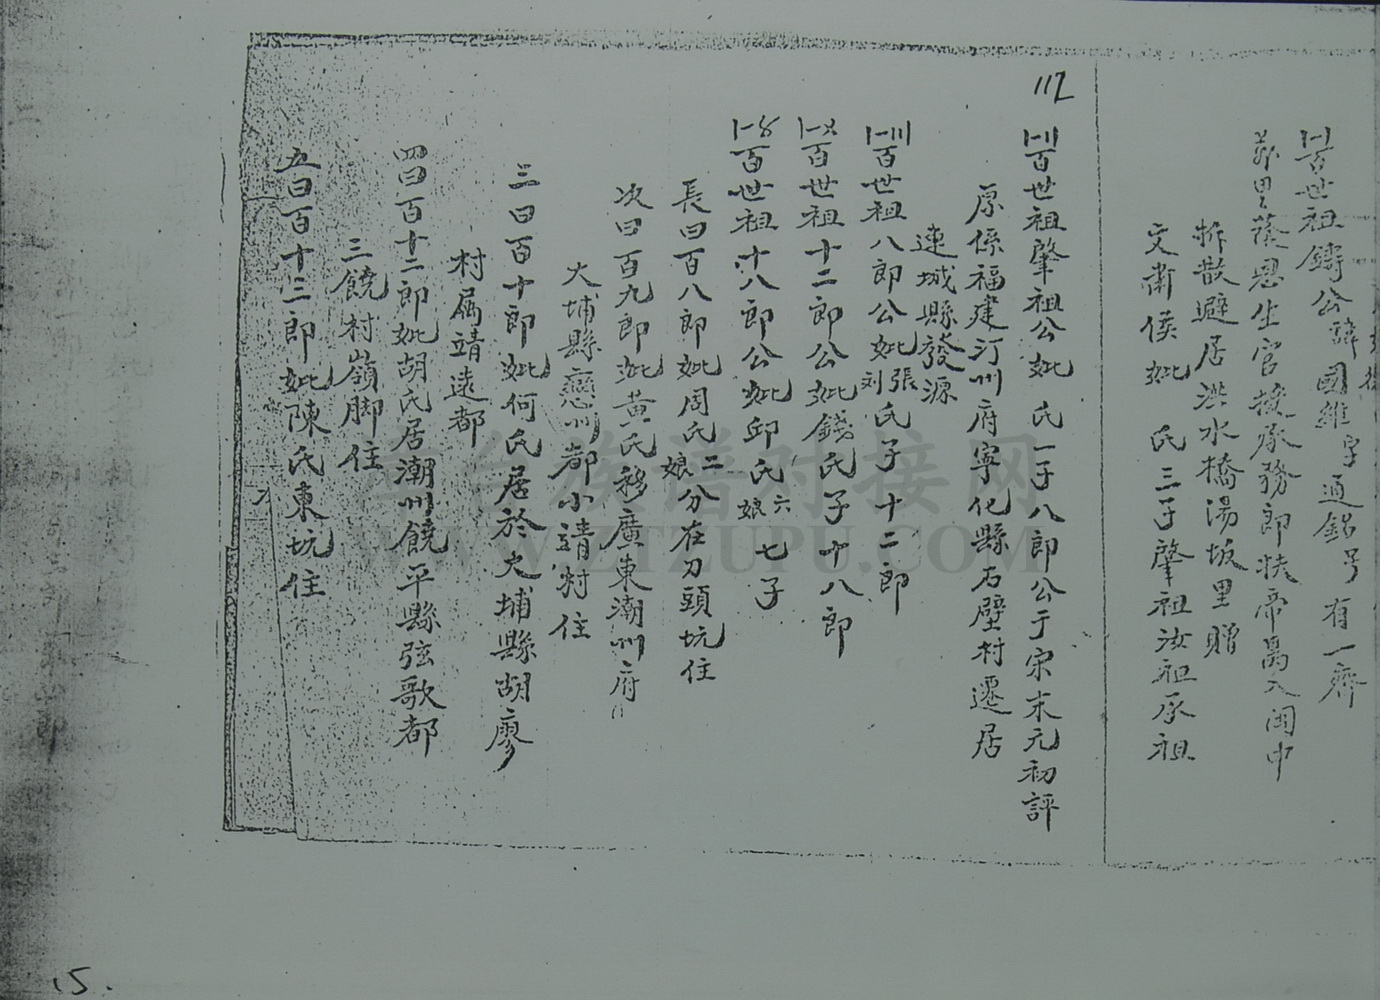 百世祖鑄公諱國維字通銘号有一齋
蔭恩生官授承務郎扶帝昺入闽中
拆散避居洪水橋湯坂里贈
文肅侯妣 氏三子肇祖汝祖承祖
112
百世祖肇祖公妣 氏一子八郎公于宋末元初評
原係福建汀州府寧化縣石壁村遷居
連城縣發源
〢百世祖八郎公妣張刘氏子十二郎
百世祖十二郎公妣錢氏子十八郎
百世祖十八郎公妣邱氏六娘七子
長曰百八郎妣周氏二娘分在刀頭坑住
次曰百九郎妣黄氏移廣東潮州府
大埔縣戀州都小靖村住
三曰百十郎妣何氏居於大埔縣胡廖
村属靖遠都
四曰百十二郎妣胡氏居潮州饒平縣弦歌都
三饒村嶺脚住
五曰百十三郎妣陳氏東坑住
WWW.ZTZUPU.COM
15.